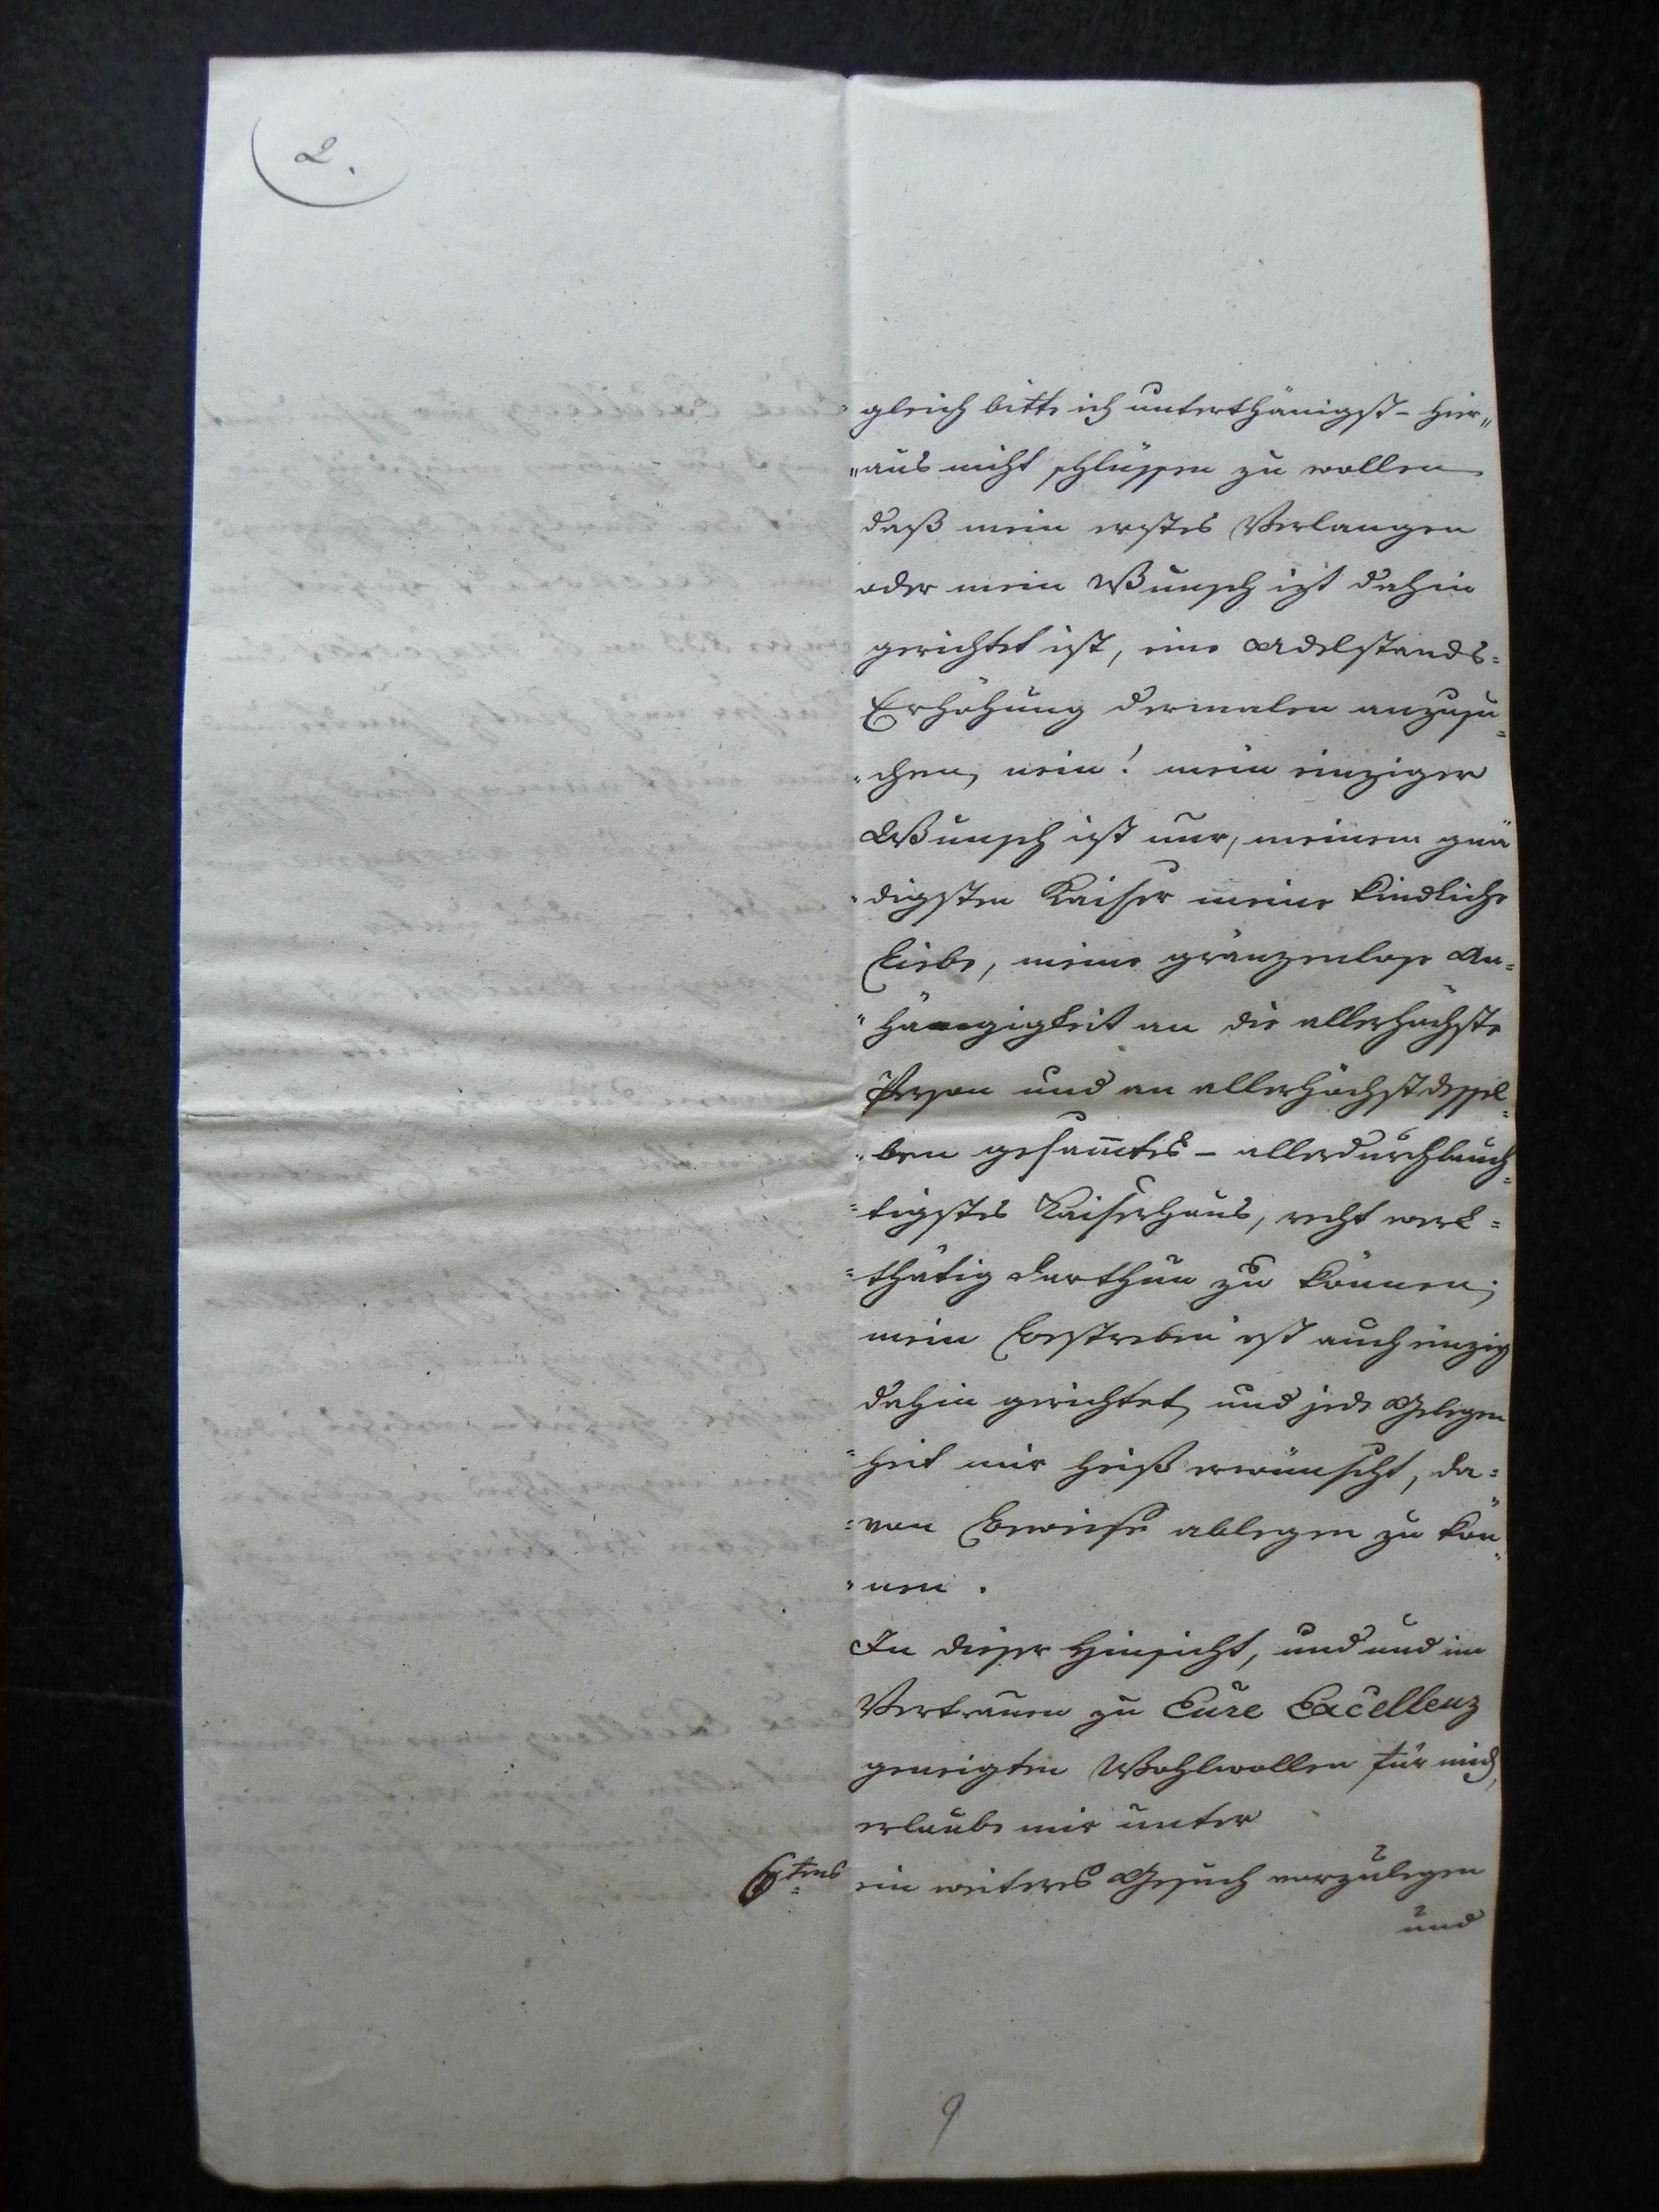 2.
gleich bitte ich unterthänigst - hier„
„aus nicht schlüssen zu wollen
daß mein erstes Verlangen
oder mein Wunsch izt dahin
gerichtet ist, eine Adelstands=
Erhöhung dermalen anzusu=
"chen, nein! mein einziger
Wunsch ist nur, meinem gnä
"digsten Kaiser meine kindliche
Liebe, meine gränzenlose An=
"hängigkeit an die allerhöchste
Person und an allerhöchstdessel=
"ben gesam̅tes - allerdurchlauch=
=tigstes Kaiserhaus, recht werk=
=thätig darthun zu können;
mein Bestreben ist auch einzig
dahin gerichtet, und jede Gelegen
=heit mir heiß erwünscht, da=
=von Beweise ablegen zu kön„
"nen.
In dieser Hinsicht, und und im
Vertrauen zu Eure Excellenz
geneigten Wohlwollen für mich,
erlaube mir unter
6tens ein weiteres Gesuch vorzulegen
und
9